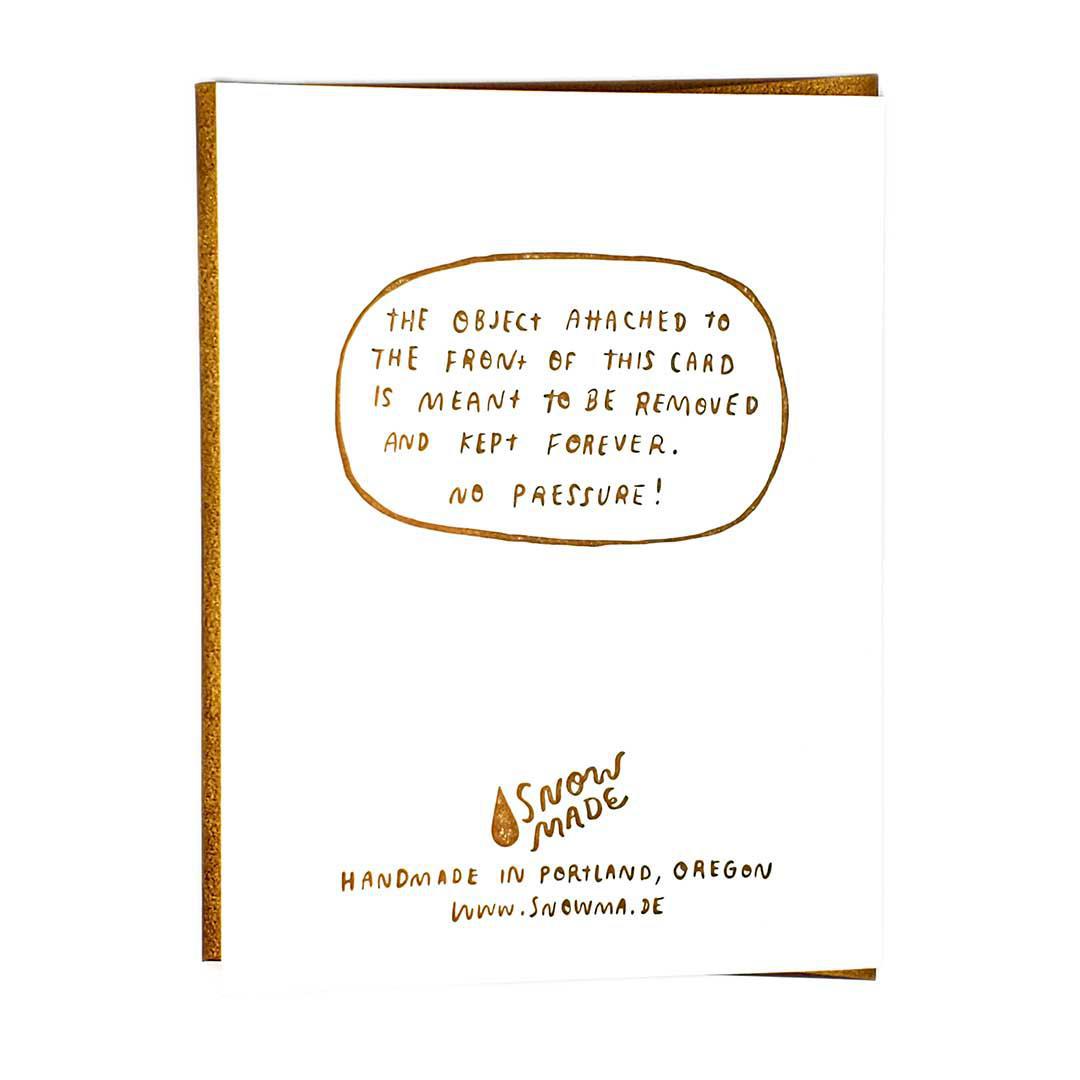 THE OBJECT ATTACHED TO
THE FRONT OF THIS CARD
IS MEANT TO BE REMOVED
AND KEPT FOREVER.
NO PRESSURE!
SNOW
MADE
HANDMADE IN PORTLAND, OREGON
WWW.SNOWMA.DE